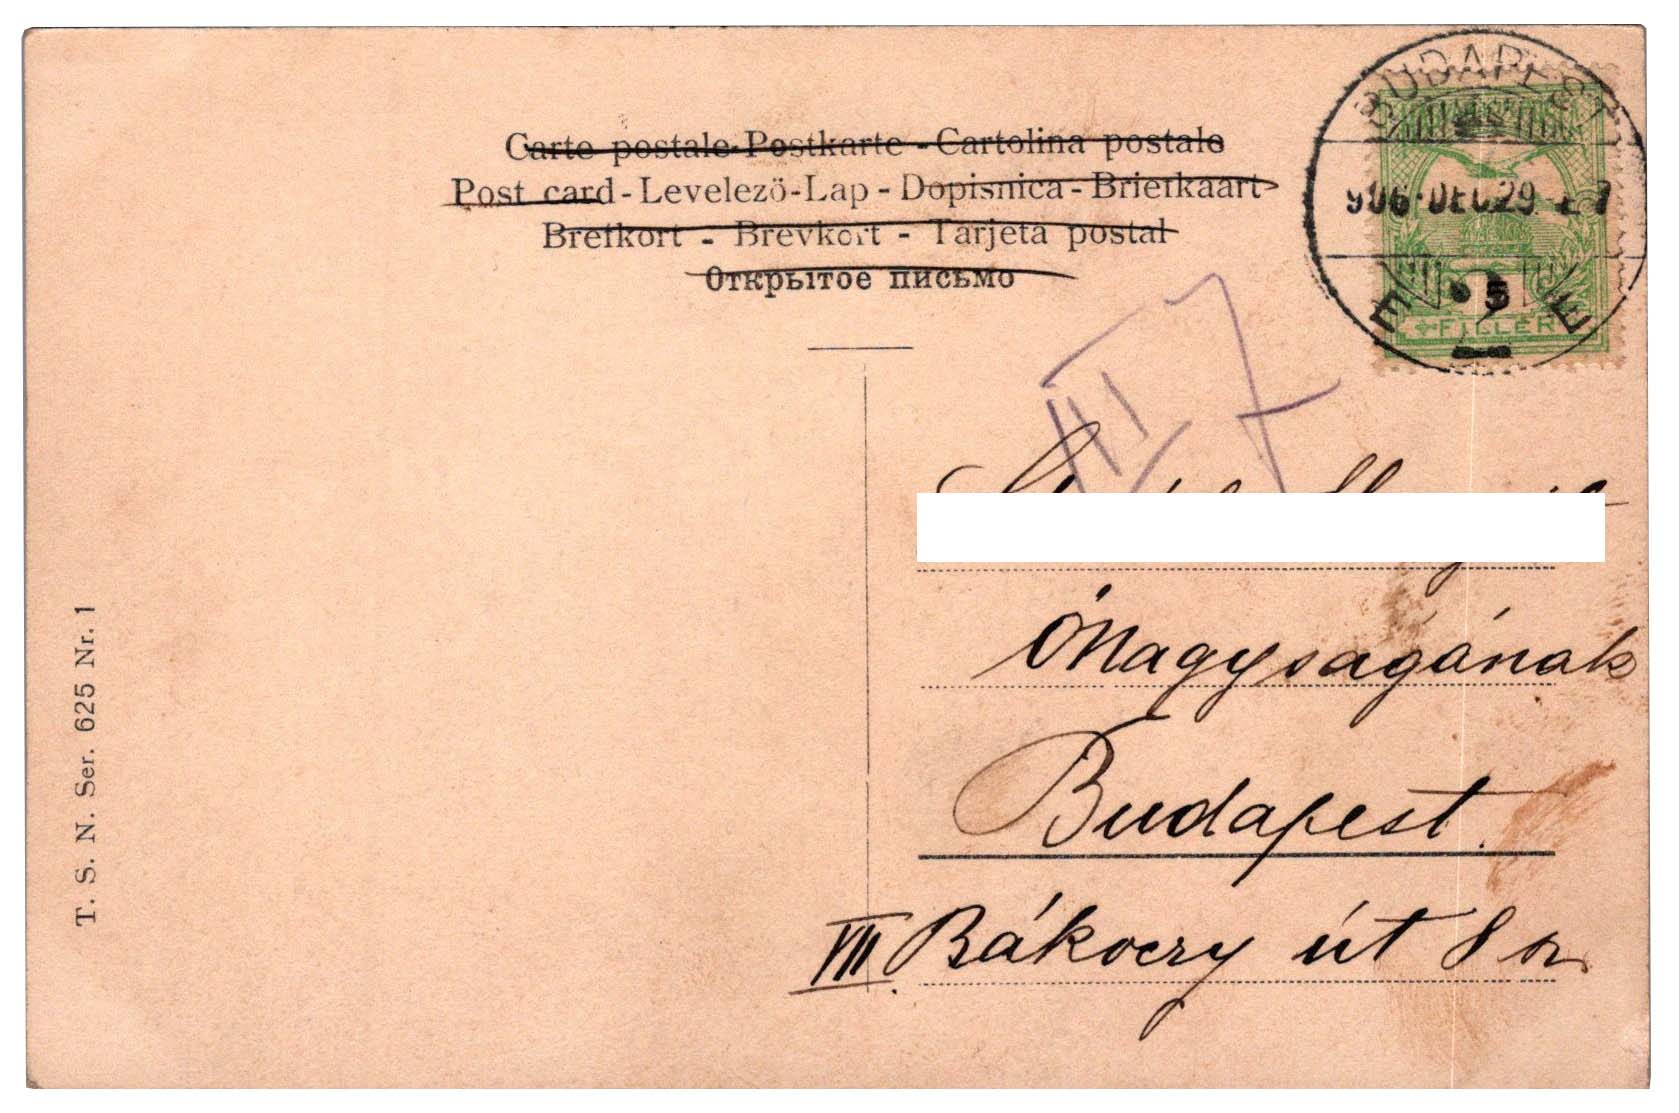 Carte postale-Postkarte - Cartolina postale
Post card - Levelező-Lap - Dopisnica - Briefkaart
Brefkort - Brevkort - Tarjeta postal
Открытое письмо
BUDAPEST
906 DEC 29
5
FILLÉR
VII 7
ÓNagyságának
Budapest.
VII. Rákoczy út 8 sz
T. S. N. Ser. 625 Nr. 1